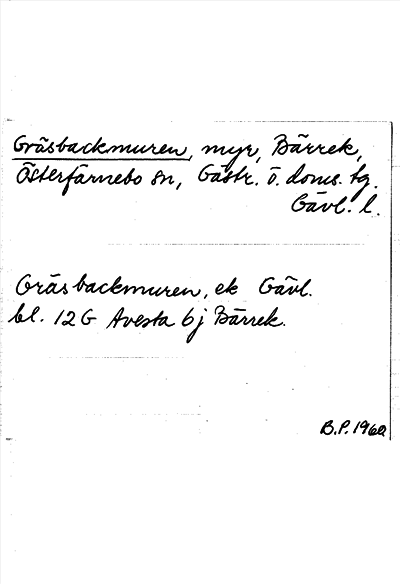 Gräsbackmuren, myr, Bärrek,
Österfärnebo sn, Gästr. ö. doms. tg.
Gävl. l.
Gräsbackmuren, ek Gävl.
bl. 12 G Avesta 6j Bärrek.
B.P. 1960